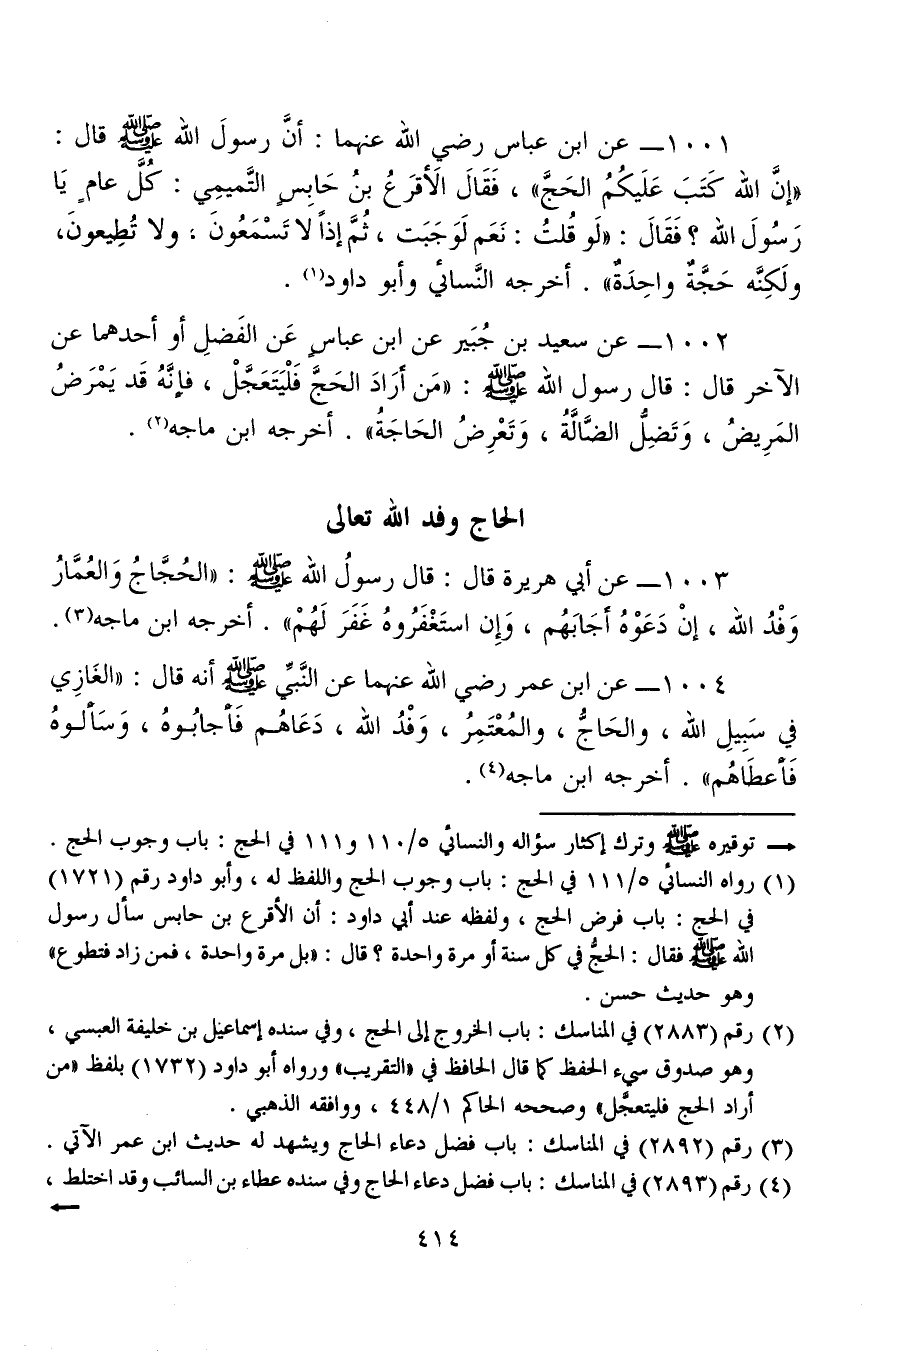 ١٠٠١ــ عن ابن عباس رضي الله عنهما : أنَّ رسولَ الله ﷺ قال :
«إنَّ الله كَتَبَ عَلَيكُمُ الحَجَّ» ، فَقَالَ الَأقرَعُ بنُ حَابِسٍ التَّميمِي : كُلَّ عام ٍ يَا
رَسُولَ الله ؟ فَقَالَ : «لَو قُلتُ : نَعَم لَوجَبَت ، ثُمَّ إذاً لا تَسْمَعُونَ ، ولا تُطِيعونَ،
ولَكِنَّه حَجَّةٌ واحِدَةٌ» . أخرجه النَّسائي وأبو داود(١) .
١٠٠٢ــ عن سعيد بن جُبَير عن ابن عباسٍ عَن الفَضلِ أو أحدهما عن
الآخر قال : قال رسول الله ﷺ : «مَن أرَادَ الحَجَّ فَلْيَتَعَجَّلْ ، فإنَّهُ قَد يَمْرَضُ
المَرِيضُ ، وَتَضِلُّ الضَّالَّةُ ، وَتَعْرِضُ الحَاجَةُ» . أخرجه ابن ماجه(٢) .
الحاج وفد الله تعالى
١٠٠٣ــ عن أبي هريرة قال : قال رسولُ الله ﷺ : «الحُجَّاجُ وَالعُمَّارُ
وَفْدُ الله ، إنْ دَعَوْهُ أجَابَهُم ، وَإن استَغْفَرُوهُ غَفَرَ لَهُمْ» . أخرجه ابن ماجه(٣).
١٠٠٤ــ عن ابن عمر رضي الله عنهما عن النَّبيِّ ﷺ أنه قال : «الغَازِي
في سَبِيلِ الله ، والحَاجُّ ، والمُعْتَمِرُ ، وَفْدُ الله ، دَعَاهُم فَأجابُوهُ ، وَسَألوهُ
فَأعطَاهُم» . أخرجه ابن ماجه(٤) .
← توقيره ﷺ وترك إكثار سؤاله والنسائي ١١٠/٥ و١١١ في الحج : باب وجوب الحج .
(١) رواه النسائي ١١١/٥ في الحج : باب وجوب الحج واللفظ له ، وأبو داود رقم (١٧٢١)
في الحج : باب فرض الحج ، ولفظه عند أبي داود : أن الأقرع بن حابس سأل رسول
الله ﷺ فقال : الحجُّ في كل سنة أو مرة واحدة ؟ قال : «بل مرة واحدة ، فمن زاد فتطوع»
وهو حديث حسن .
(٢) رقم (٢٨٨٣) في المناسك : باب الخروج إلى الحج ، وفي سنده إسماعيل بن خليفة العبسي ،
وهو صدوق سيء الحفظ كما قال الحافظ في «التقريب» ورواه أبو داود (١٧٣٢) بلفظ «من
أراد الحج فليتعجَّل» وصححه الحاكم ٤٤٨/١ ، ووافقه الذهبي .
(٣) رقم (٢٨٩٢) في المناسك : باب فضل دعاء الحاج ويشهد له حديث ابن عمر الآتي .
(٤) رقم (٢٨٩٣) في المناسك : باب فضل دعاء الحاج وفي سنده عطاء بن السائب وقد اختلط ،
←
٤١٤